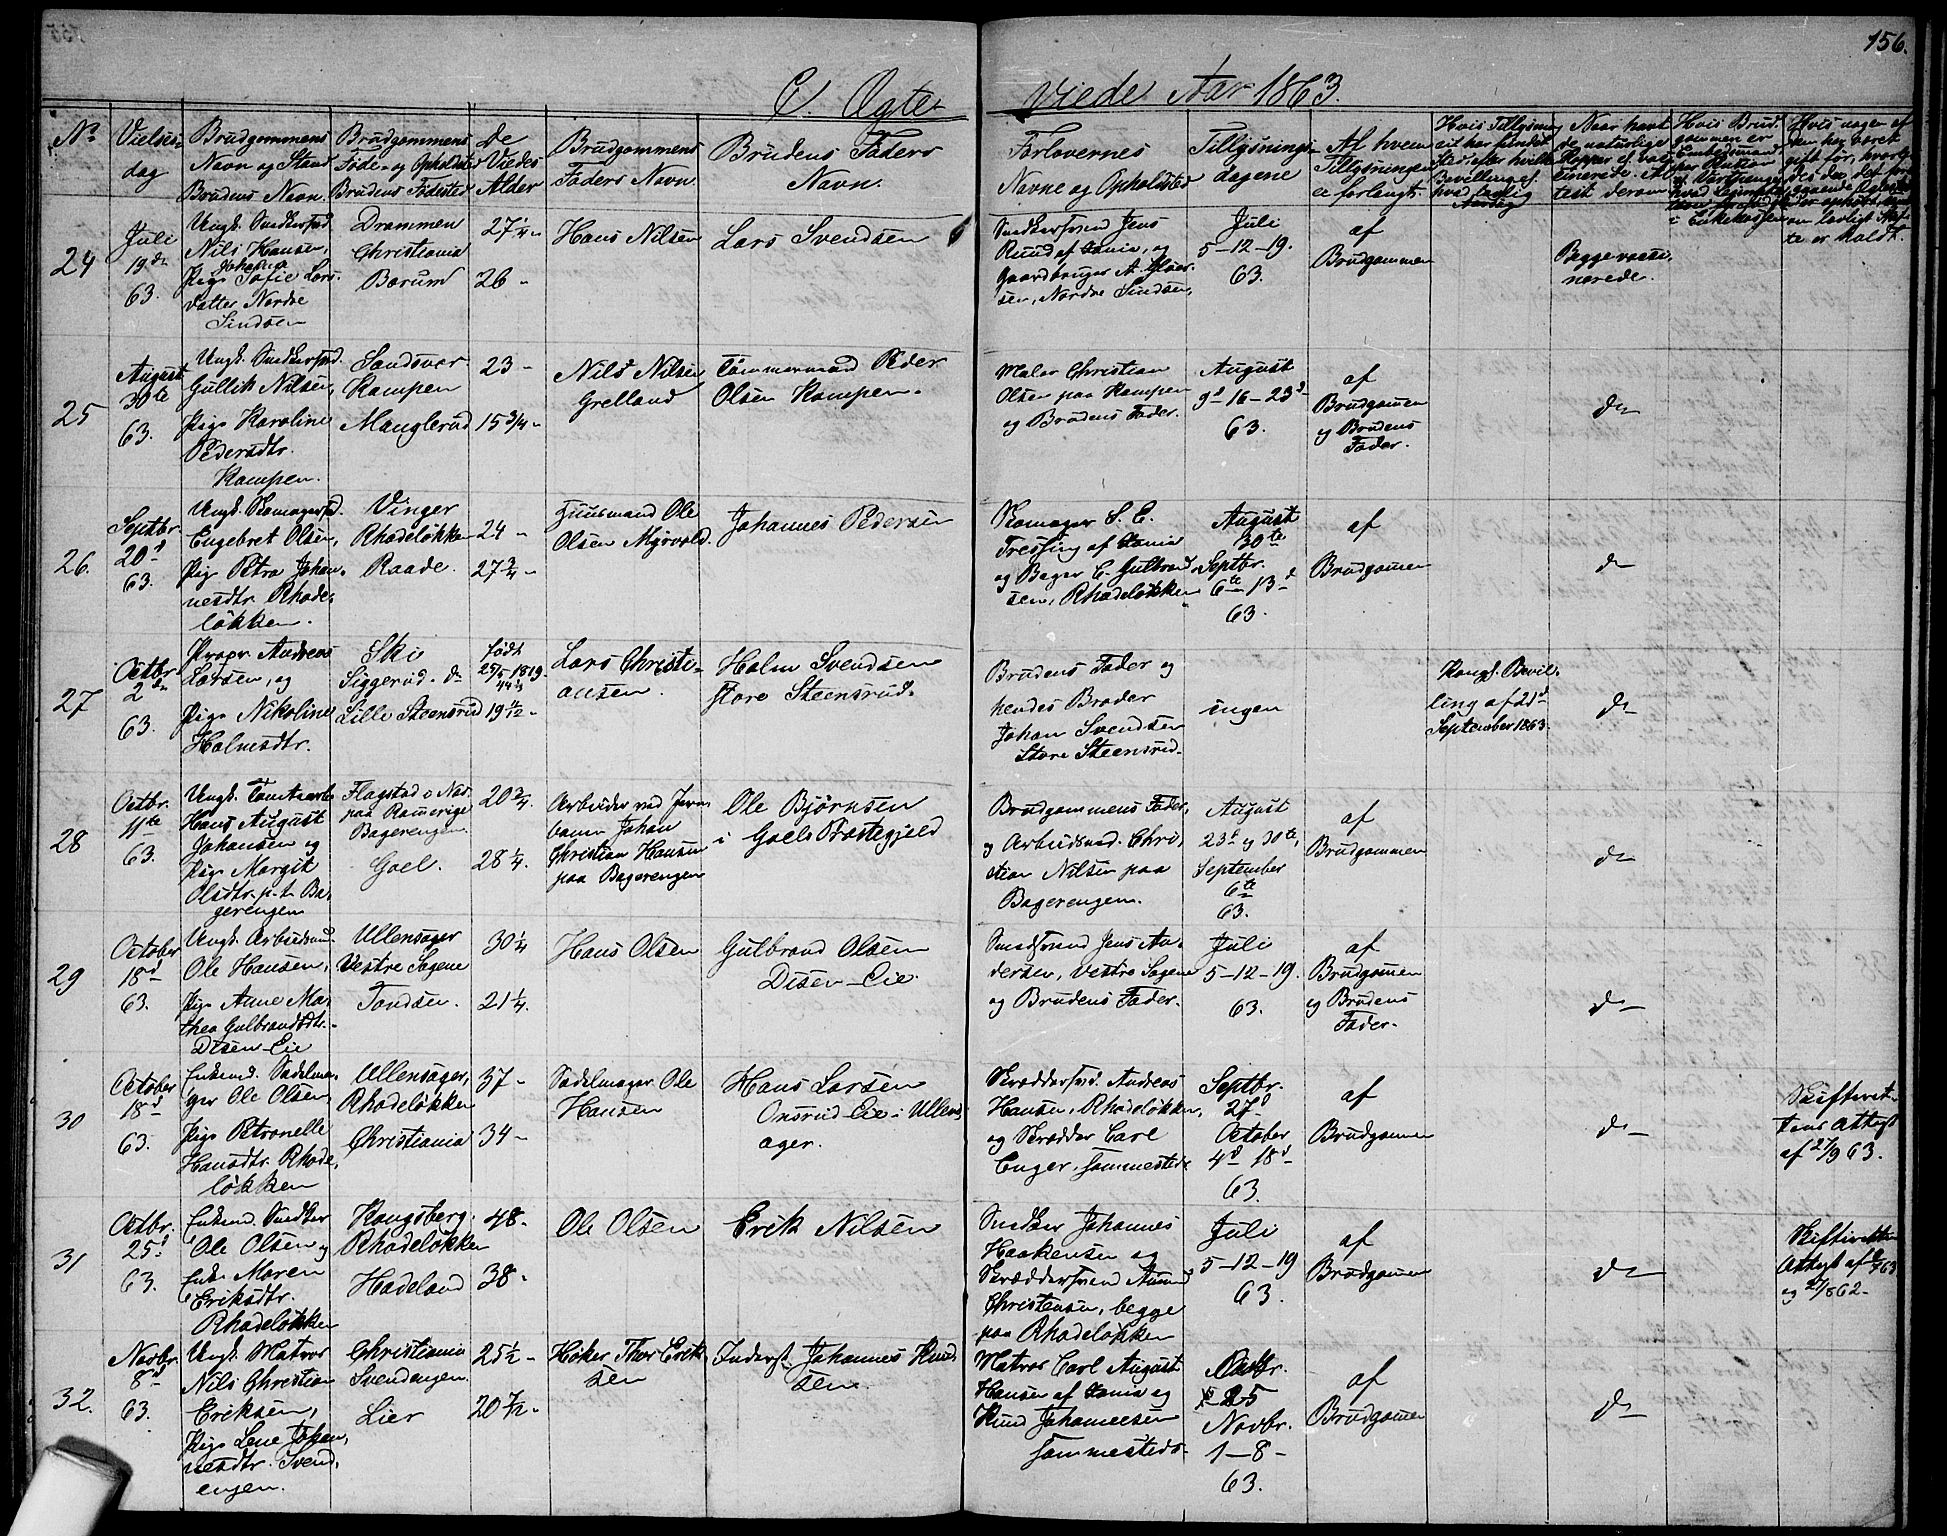 156.
C. Ægte-
viede Aar 1863.
No
Vielses-
dag
Brudgommens
Navn og Stand
Brudens Navn.
Brudgommens
Føde- og Opholdsted
Brudens Fødested
de
Viedes
Alder
Brudgommens
Faders Navn
Brudens Faders
Navn.
Forlovernes
Navne og Opholdsted
Tillysnings-
dagene
Af hvem
Tillysningen
er forlangt.
Hvis Tillysning
ei har fundet
Sted efter hvilken
Bevilling ell.
hvad lovlig
Naar havt
de naturlige
Kopper el. vac-
cinerede. At-
test derom
Hvis Brud-
gommen er
Embedsmand
i Enkekassen
Hvis nogen af
dem har været
gift før, hvorle-
des da det fore-
gaaende Ægteskab
er ophævet,
om lovligt Skif-
te er holdt.
24
Juli
19de
63.
Ungk. Snedkersvd
Nils Hansen,
Johanna
Pige Sofie Lars-
datter Nordre
Sindsen
Drammen
Christiania
Bærum
27 1/4 -
26 -
Hans Nilsen
Lars Svendsen
Snedkersvend Jens
Ruud af Xania, og
Gaardbruger A. Gløer-
sen, Nordre Sindsen,
Juli
5-12-19.
63.
af
Brudgommen
Begge vacci-
nerede.
25
August
30te
63.
Ungk. Snedkersvd.
Gullik Nilsen,
Pige Karoline
Pedersdtr.
Kampen.
Sandsvær
Kampen
Manglerud
23 -
15 3/4 -
Nils Nilsen
Grelland
Tømmermand Peder
Olsen Kampen.
Maler Christian
Olsen paa Kampen
og Brudens Fader.
August
9d 16 - 23d
63.
af
Brudgommen
og Brudens
Fader.
do
26.
Septbr.
20d
63.
Ungk. Skomagersvd.
Engebret Olsen,
Pige Petra Johan-
nesdtr. Rhode-
løkken.
Vinger
Rhodeløkken
Raade.
24 -
27 3/4 -
Huusmand Ole
Olsen Myrvold.
Johannes Pedersen
Skomager S. C.
Tressing af Xania
og Bager C. Gulbrand-
sen, Rhodeløkken
August
30te
Septbr.
6te 13de
63.
af
Brudgommen
do
27
Octbr
2den
63.
Propr. Andreas
Larsen, og
Pige Nikoline
Holmsdtr.
Ski
Siggerud. do
Lille Steensrud
født
25/5 1819.
44 1/3
19 4/12 -
Lars Christi-
ansen.
Holm Svendsen
store Steensrud.
Brudens Fader og
hendes Broder
Johan Svendsen
Store Steensrud.
ingen
Kongl. Bevil-
ling af 21d
September 1863.
do
28
Octbr.
11te
63.
Ungk. Tomtearb.
Hans August
Johansen og
Pige Margit
Olsdtr. p. t. Ba-
gerengen
Flagstad i Næs
paa Romerige
Bagerengen
Goel.
20 3/4.
28 1/4.
Arbeider ved Jern-
banen Johan
Christian Hansen
paa Bagerengen
Ole Bjørnsen
i Goels Præstegjeld
Brudgommens Fader,
og Arbeidsmd. Chri-
stian Nilsen paa
Bagerengen.
August
23d og 30te,
September
6te
63.
af
Brudgommen
do
29
October
18d
63.
Ungk. Arbeidsmd
Ole Hansen,
Pige Anne Mar-
thea Gulbrandsdtr.
Disen-Eie
Ullensager
Vestre Sagene
Tondsen.
30 1/4
21 1/4.
Hans Olsen
Gulbrand Olsen
Disen-Eie.
Smedsvend Jens An-
dersen, Vestre Sagene
og Brudens Fader.
Juli
5-12-19.
63.
af
Brudgommen
og Brudens
Fader.
do
30
October
18d
63.
Enkemd. Sadelma-
ger Ole Olsen,
Pige Petronelle
Hansdtr. Rhode-
løkken
Ullensager,
Rhodeløkken
Christiania
37 -
34 -
Sadelmager Ole
Hansen
Hans Larsen
Onsrud Eie i Ullens-
ager.
Skræddersvd. Andreas
Hansen, Rhodeløkken,
og Skrædder Carl
Enger, sammesteds
Septbr.
27d
October
4d 18d
63.
af
Brudgommen
do
Skifteret-
tens Attest
af 21/9 63.
31
Octbr.
25d
63.
Enkemd. Snedker
Ole Olsen og
Enke Maren
Eriksdtr.
Rhodeløkken
Kongsberg.
Rhodeløkken
Hadeland
48 -
38 -
Ole Olsen
Erik Nilsen
Snedker Johannes
Haakensen og
Skræddersvend Amund
Christensen, begge
paa Rhodeløkken
Juli
5-12-19
63.
af
Brudgommen
do
Skifterettens
Attest af
og 21/8 62.
32.
Novbr.
8d
63.
Ungk. Matros
Nils Christian
Eriksen,
Pige Lene Johan-
nesdtr. Svend-
engen.
Christiania
Svendengen.
Lier
25 1/2 -
20 7/12 -
Høker Thor Erik-
sen
Inderst Johannes Knud-
sen.
Matros Carl August
Hansen af Xania og
Knud Johannesen
sammesteds.
Octbr.
25
Novbr.
1 - 8 -
63.
af
Brudgommen
do